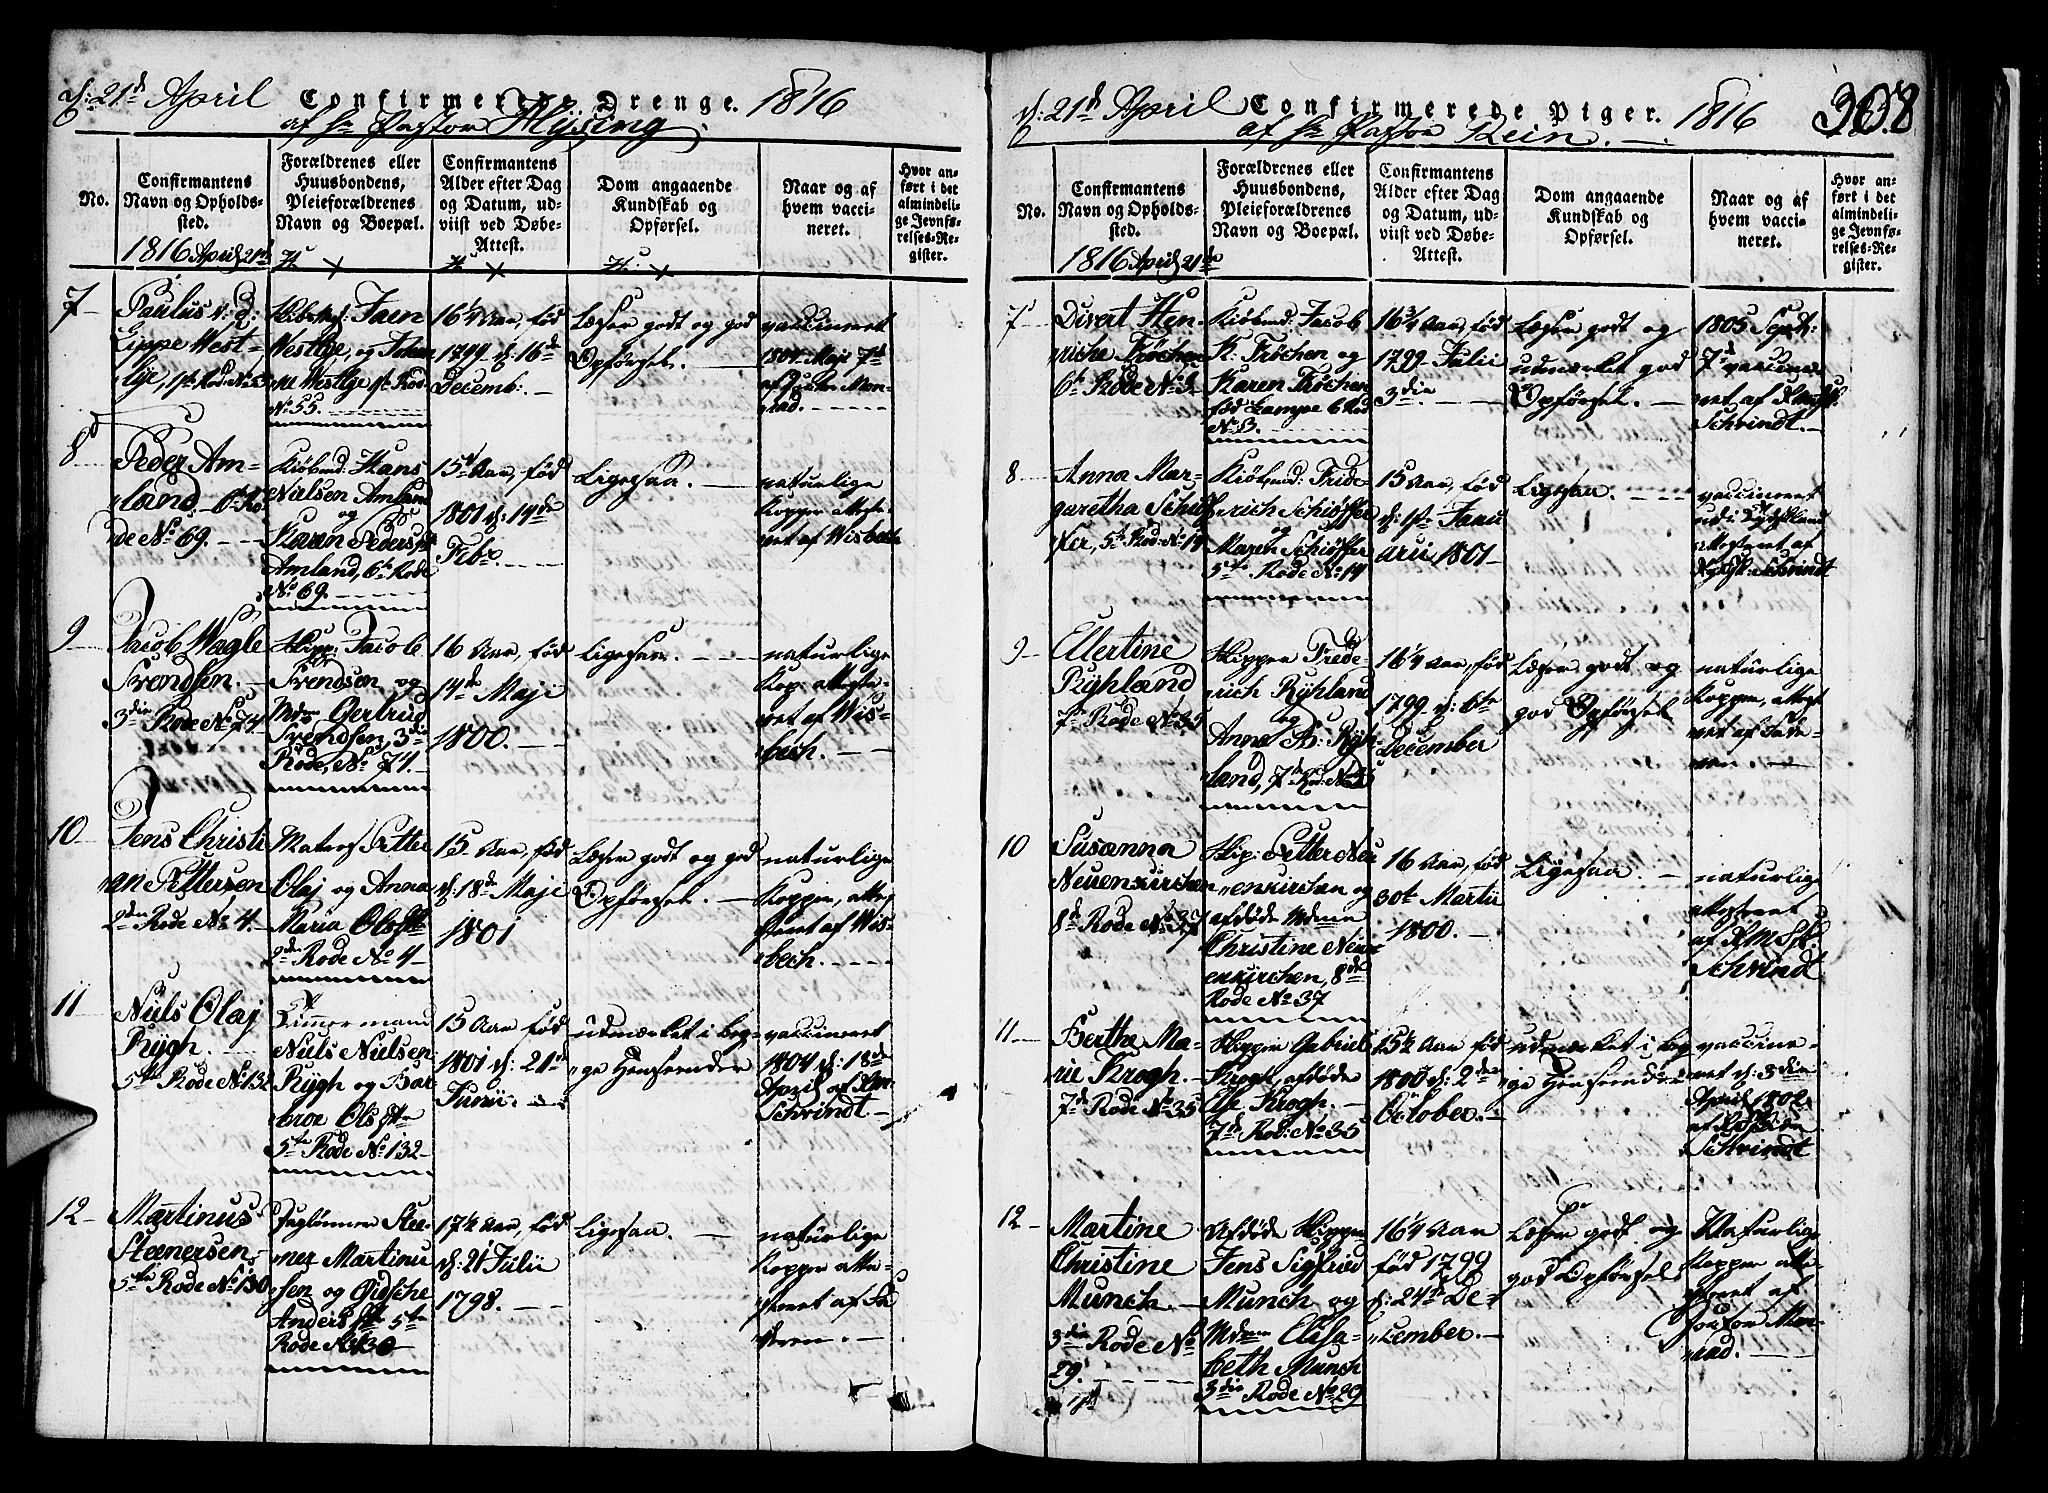 d: 21d April Confirmerede Drenge. 1816
af Hr Pastor Hysing
No.
Confirmantens
Navn og Opholds-
sted.
1816 April 21de
Forældrenes eller
Huusbondens,
Pleieforældrenes
Navn og Boepæl.
Confirmantens
Alder efter Dag
og Datum, ud-
viist ved Døbe-
Attest.
Dom angaaende
Kundskab og
Opførsel.
Naar og af
hvem vacci-
neret.
Hvor an-
ført i det
almindeli-
ge Jevnfø-
relses-Re-
gister.
7
Paulus v: d:
Lippe West-
lye, 1ste Rode No 55
Westlye, og
Westlye 1ste Rod
No 55.
16¼ Aar, fød
1799 d: 16de
Decemb:
Læser godt og god
Opførsel.
vaccineret
1804 Maji 7d
8
Peder Am-
land 6te Ro
de No 69.
Kiøbmd: Hans
Nielsen Amland
og
Karen Peders
Amland, 6te Rode
No 69.
15 Aar, fød
1801 d: 14de
Febr.
Ligesaa.
naturlige
Kopper atteste-
ret af Wisbech
9
Jacob Wagle
Svendsen.
3die Rode No 74
Skipp: Jacob
Svendsen og
Mdm Gertrud
Svendsen, 3die
Rode, No 74.
16 Aar, fød
14de Maji
1800.
Ligesaa.
naturlige
Kop: atteste-
ret af Wis-
bech.
10
Jens Christi
an Pettersen
2den Rode No 4.
Matros Petter
Olaj og Anna
Maria Olsdtr
2den Rode No 4
15 Aar, fød
d: 18de Maji
1801
Læser godt og god
Opførsel.
naturlige
Kopper, atte-
steret af Wis-
bech.
11
Niels Olaj
Rygh.
5te Rode No 132
Timmermand
Niels Nielsen
Rygh og Bar
broe Olsdtr
5te Rode No 132
15 Aar fød
1801 d: 21de
Junii.
udmærket i beg-
ge Henseender
vaccineret
1804 d: 18de
April af
Schvindt
12
Martinus
Steenersen,
5te Rode No 130
Dagleiner Stee-
ner Martinu
sen og Gidsche
Anders dtr 5te
Rode No 130
17½ Aar, fød
d: 21 Julii
1798.
Ligesaa.
naturlige
Kopper atte-
steret af Fa
bern.
d: 21d April Confirmerede Piger. 1816 308
af Hr Pastor Rein.
No.
Confirmantens
Navn og Opholds-
sted.
1816 April 21de
Forældrenes eller
Huusbondens,
Pleieforældrenes
Navn og Boepæl.
Confirmantens
Alder efter Dag
og Datum, ud-
viist ved Døbe-
Attest.
Dom angaaende
Kundskab og
Opførsel.
Naar og af
hvem vacci-
neret.
Hvor an-
ført i det
almindeli-
ge Jevnfø-
relses-Re-
gister.
7
Divert Hen-
riche Trøchen
6te Rode No 3.
Kiøbmd: Jacob
K: Trøchen og
Karen Trøchen
fød Lampe 6 Rod
No 3.
16¾ Aar, fød
1799 Julii
3die
Læser godt og
udmærket god
Opførsel.
1805 Septr:
7d vaccine
ret af
Schvindt.
8
Anna Mar-
garetha Schiøf
fer, 5te Rode No 14
Kiøbmd: Fride-
rich Schiøffer
og
Maren Schiøffer
5te Rode No 14
15 Aar, fød
d: 1ste Janu
arii 1801
Ligesaa.
vaccineret
ud i Tydskland
attesteret af
Schvindt
9
Ellertine
Ryhland
7de Rode No 35
Skipper Frede-
rich Ryhland
og
Anna B: Ryh-
land, 7de Rod: No 35
16¼ Aar, fød
1799 d: 6te
December
Læser godt og
god Opførsel
naturlige
Kopper, attest
10
Susanna
Neuenkirchen
8de Rode No 37
Skip: Petter Neu
enkirchen og
afdøde Mdme
Christine Neu
enkirchen, 8de
Rode No 37
16 Aar, fød
30te Martii
1800.
Ligesaa.
naturlige
attesteret
af
Schvindt
11
Berthe Ma-
rie Krogh.
7de Rode No 35
Skipper Gabriel
Krogh, afdøde
Else Krogh.
7de Rod: No 35
15½ Aar fød
1800 d: 2den
October.
udmærket i beg
ge Henseender
vaccine-
ret d: 3die
April 1802
Schvindt
12
Martine
Christine
Munch.
3die Rode No
29.
Afdøde Skipper
Jens Sigfried
Munch og
Mdme Elisa-
beth Munch
3die Rode No 29
16¼ Aar
fød 1799
d: 24de De-
cember.
Læser godt og
god Opførsel
Naturlige
Kopper atte-
steret af